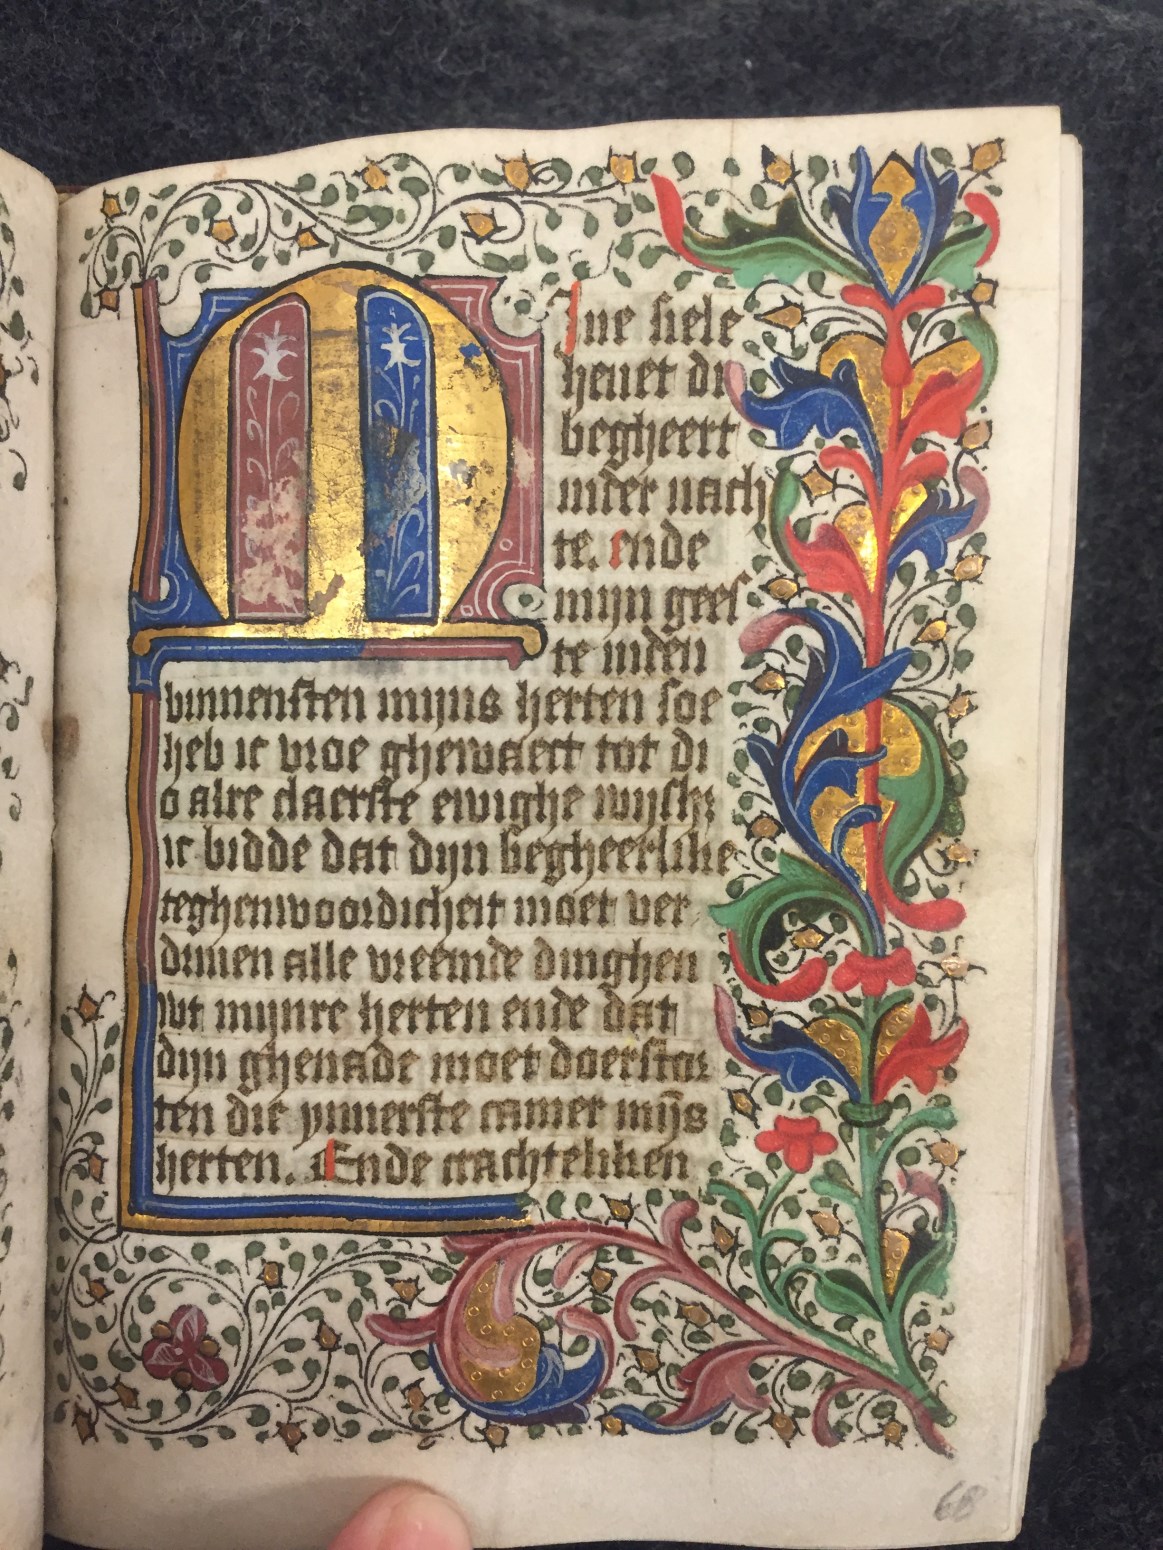 M Jne siele
heuet di
begheert
inder nach
te. ende
mijn gees
te inden
binnensten mijns herten soe
heb ic vroe ghewaect tot di
o alre claerste ewighe wijsh;
ic bidde dat dijn begheerlike
teghenwoordicheit moet ver
driuen alle vreemde dinghen
wt mijnre herten ende dat
dijn ghenade moet doerstor
ten die ynnerste camer mijs
herten. Ende crachteliken
68